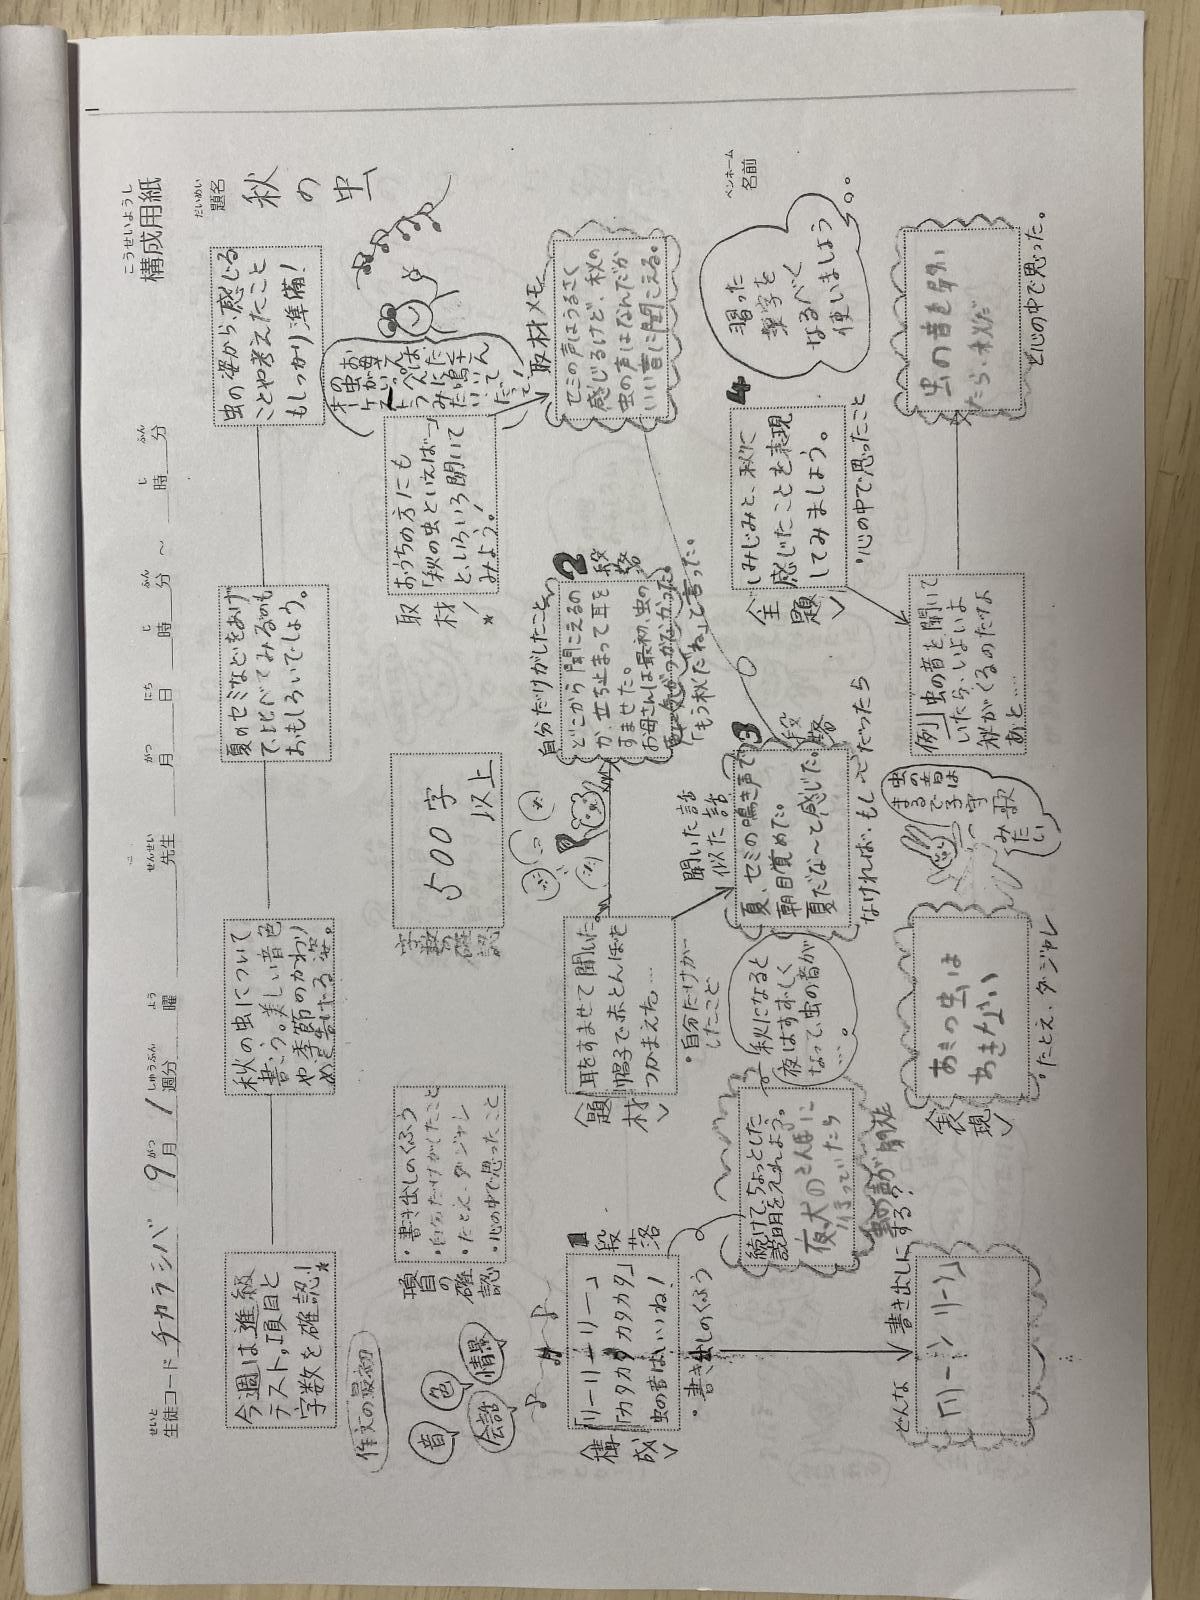 構成用紙
こうせいようし
生徒コード チカラシバ 9月 1週分 曜 先生 月 日 時 分 ～ 時 分
せいと がつ しゅうぶん よう せんせい がつ にち じ ふん じ ふん
題名
だいめい
秋の虫
今週は進級
テスト,項目と
字数を確認!
秋の虫について
書こう。美しい音色
や季節のかわり
夏のセミなどをあげ
て、比べてみるのも
おもしろいでしょう。
虫の姿から感じる
ことや考えたこと
もしっかり準備!
作文の最初
音
色
会話
情景
項目の確認
・書き出しのくふう
・自分だけがしたこと
・たとえ・ダジャレ
・心の中で思ったこと
字数の確認
500字
以上
取材
おうちの方にも
「秋の虫といえば…」
と、いろいろ聞いて
みよう。!
取材メモ
セミの声はうるさく
感じるけど、秋の
虫の声はなんだか
いい音に聞こえる。
<構成>
1段落
「リーリーリー」
「カタカタカタカタ」
虫の音はいいね!
・書き出しのくふう
<題材>
耳をすませて聞いた
帽子で赤とんぼを
つかまえた…
・自分だけが
したこと
自分だけがしたこと
2段落
どこから聞こえるの
か、立ち止まって耳を
すませました。
お母さんは最初、虫の
「もう秋だね」と言った。
続けて、ちょっとした
説明を入れよう。
夜、犬のさんぽに
行っていたら
秋になると
夜はすずしく
なって、虫の音が
…。
聞いた話
似た話
3段落
夏、セミの鳴き声で
朝目覚めた。
夏だな～と感じた。
なければ・もし～だったら
<主題>
しみじみと、秋に
感じたことを表現
してみましょう。
・心の中で思ったこと
4
習った
漢字を
なるべく
使いましょう
ペンネーム
名前
どんな書き出しにする?
「リーンリーン」
<表現>
あきの虫は
あきない
・たとえ、ダジャレ
虫の音は
まるで子守歌
みたい
例 虫の音を聞いて
いたら、いよいよ
秋がくるのだなぁ
と……
と心の中で思った。